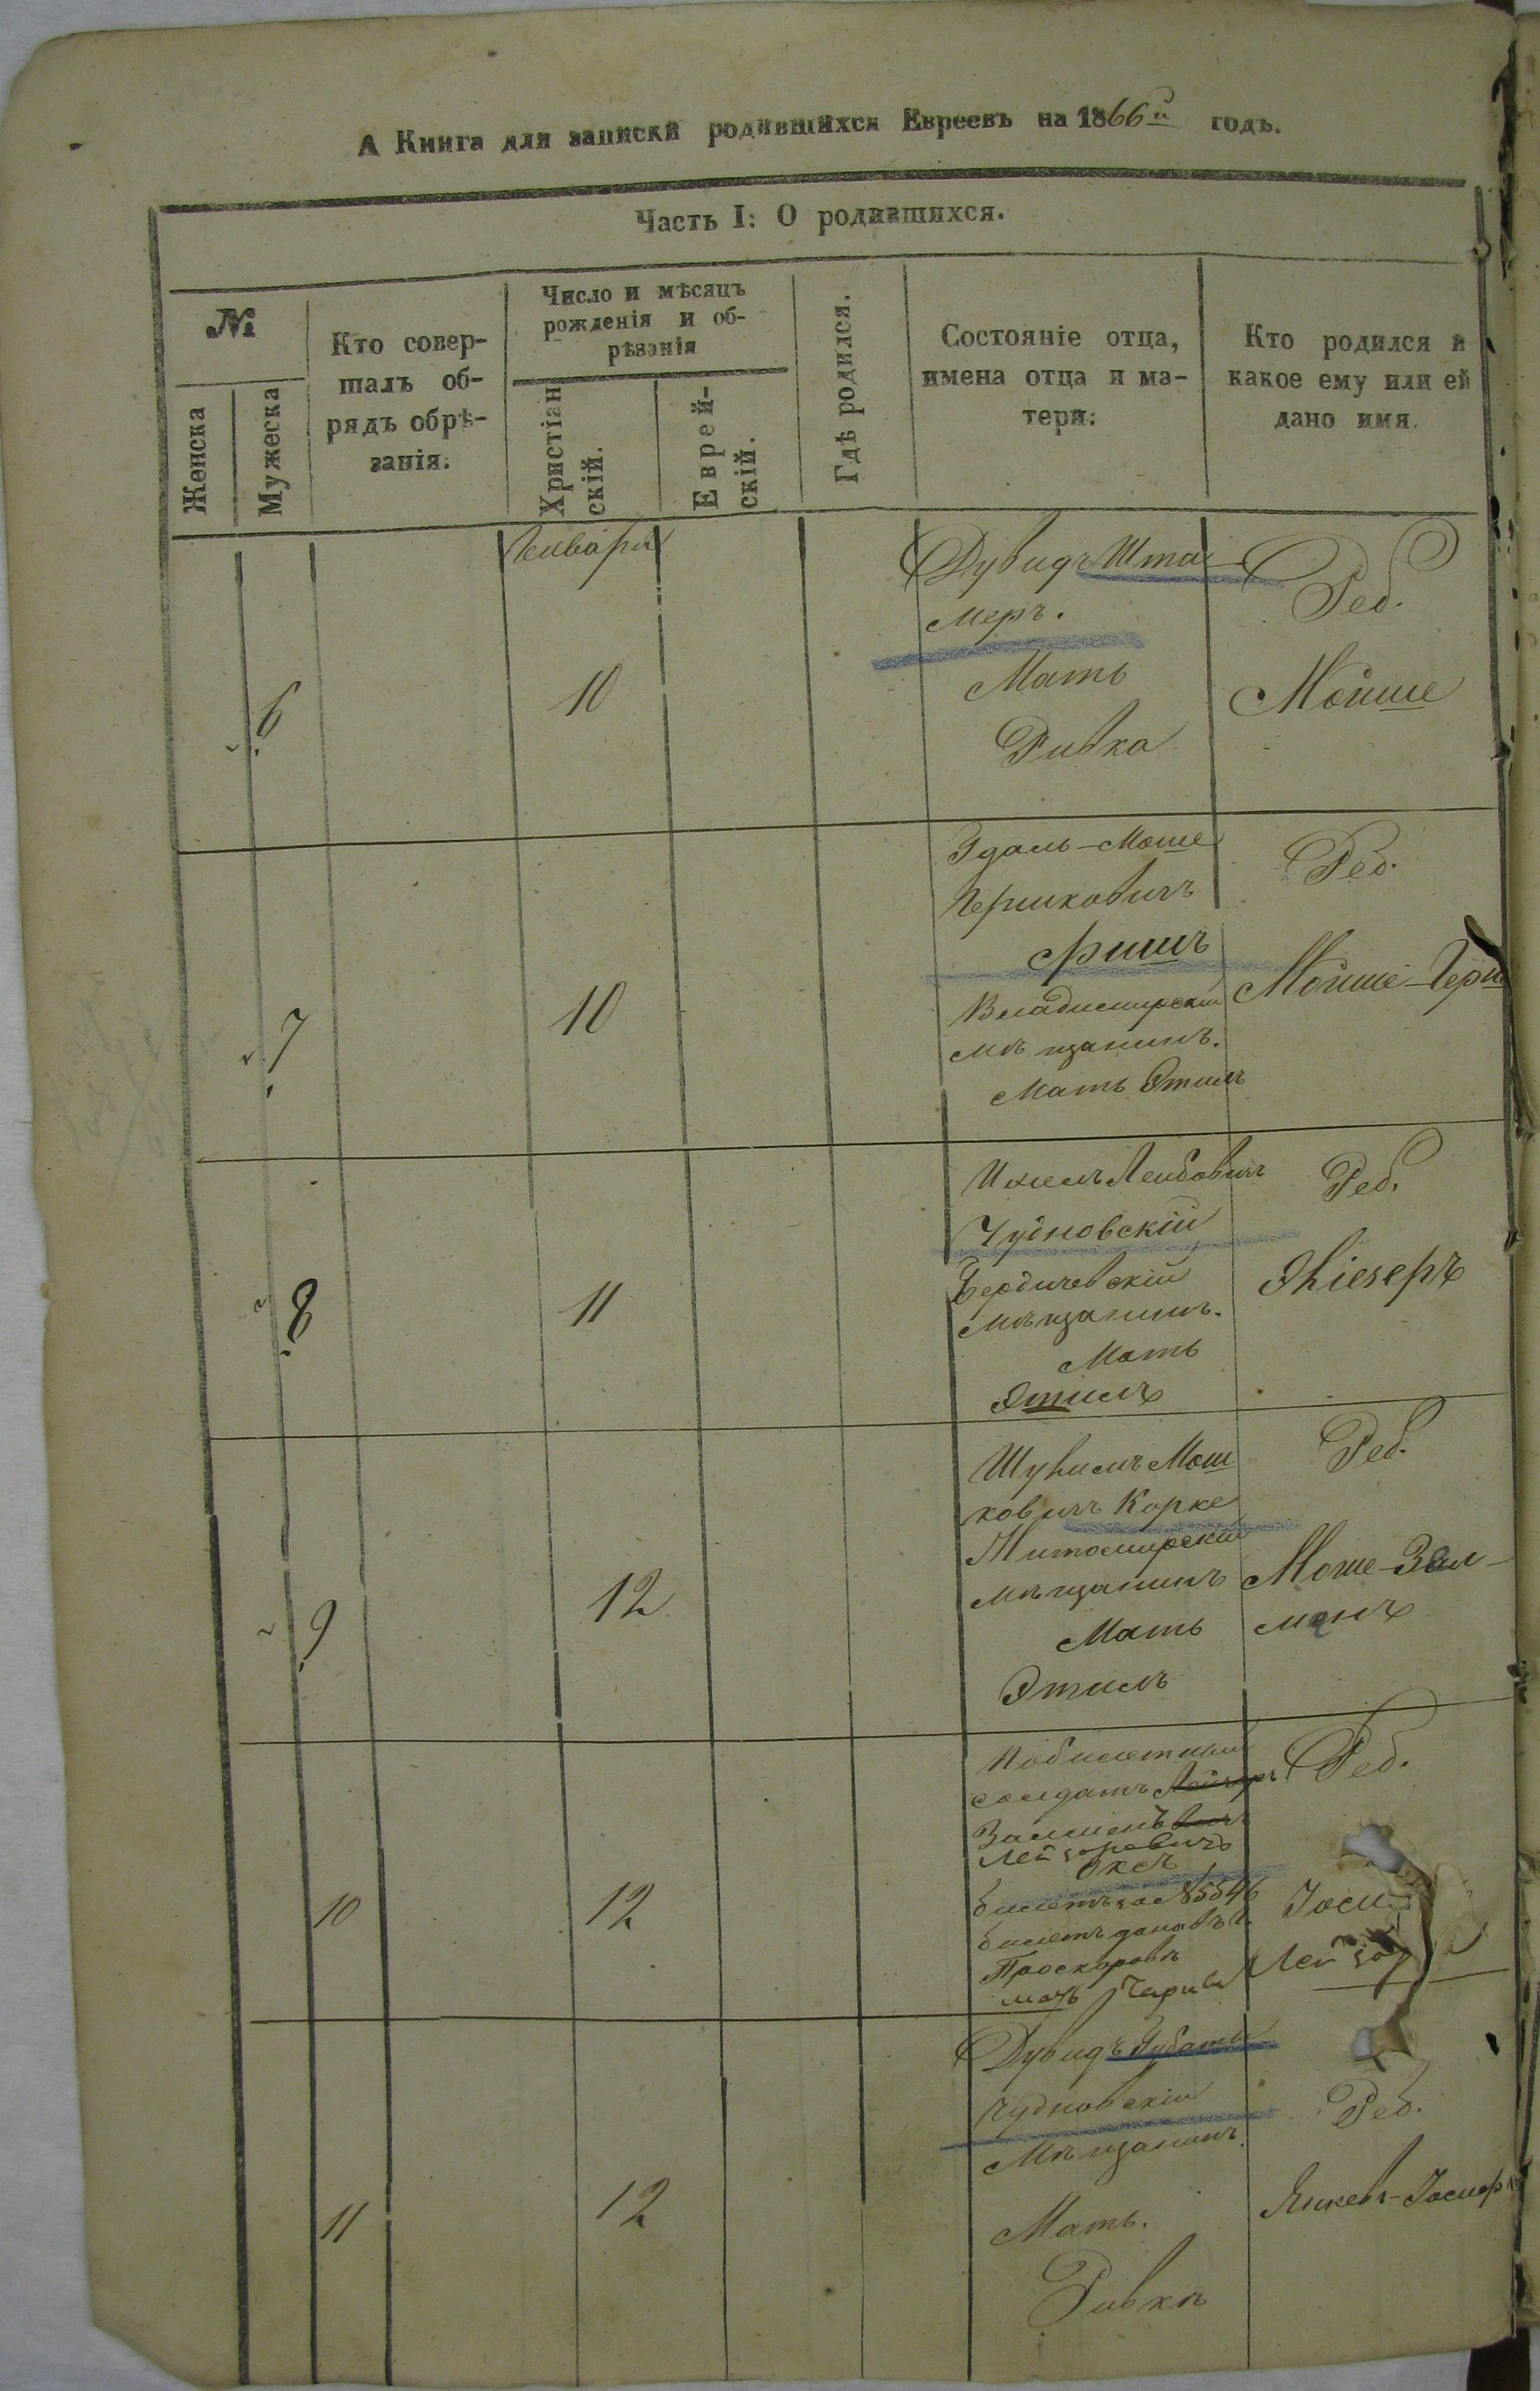 А Книга для записки родившихся Евреевъ на 1866й годъ.
Часть I: О родившихся.
№
Женска
Мужеска
Кто совер-
шалъ об-
рядъ обрѣ-
занія.
Число и мѣсяцъ
рожденія и об-
рѣзанія
Христіан
скій.
Еврей-
скій.
Гдѣ родился.
Состояніе отца,
имена отца и ма-
тери:
Кто родился и
какое ему или ей
дано имя.
Генваря
6
10
Дувидъ Шта
меръ.
Мать
Ривка
Реб.
Мойше
7
10
Моше
Гершковичъ
Фишъ
Владимирскій
мѣщанинъ.
Мать Этиль
Реб.
Мойше-Герш
8
11
Лейбовичъ
Чудновскій
Бердичевскій
мѣщанинъ.
Мать
Этиль
Реб.
Эліезеръ
9
12
Мош
ковичъ Корке
Житомирскій
мѣщанинъ
Мать
Этиль
Реб.
Моше-Зал-
манъ
10
12
Побилетный
солдатъ
Лейзоровичъ
Оксъ
билетъ за №5546
билетъ данъ въ г.
Проскоровѣ
мать
Реб.
Лейзор
11
12
Дувидъ Губатый
Чудновскій
Мѣщанинъ.
Мать.
Ривка
Реб.
Янкевъ-Іосифъ